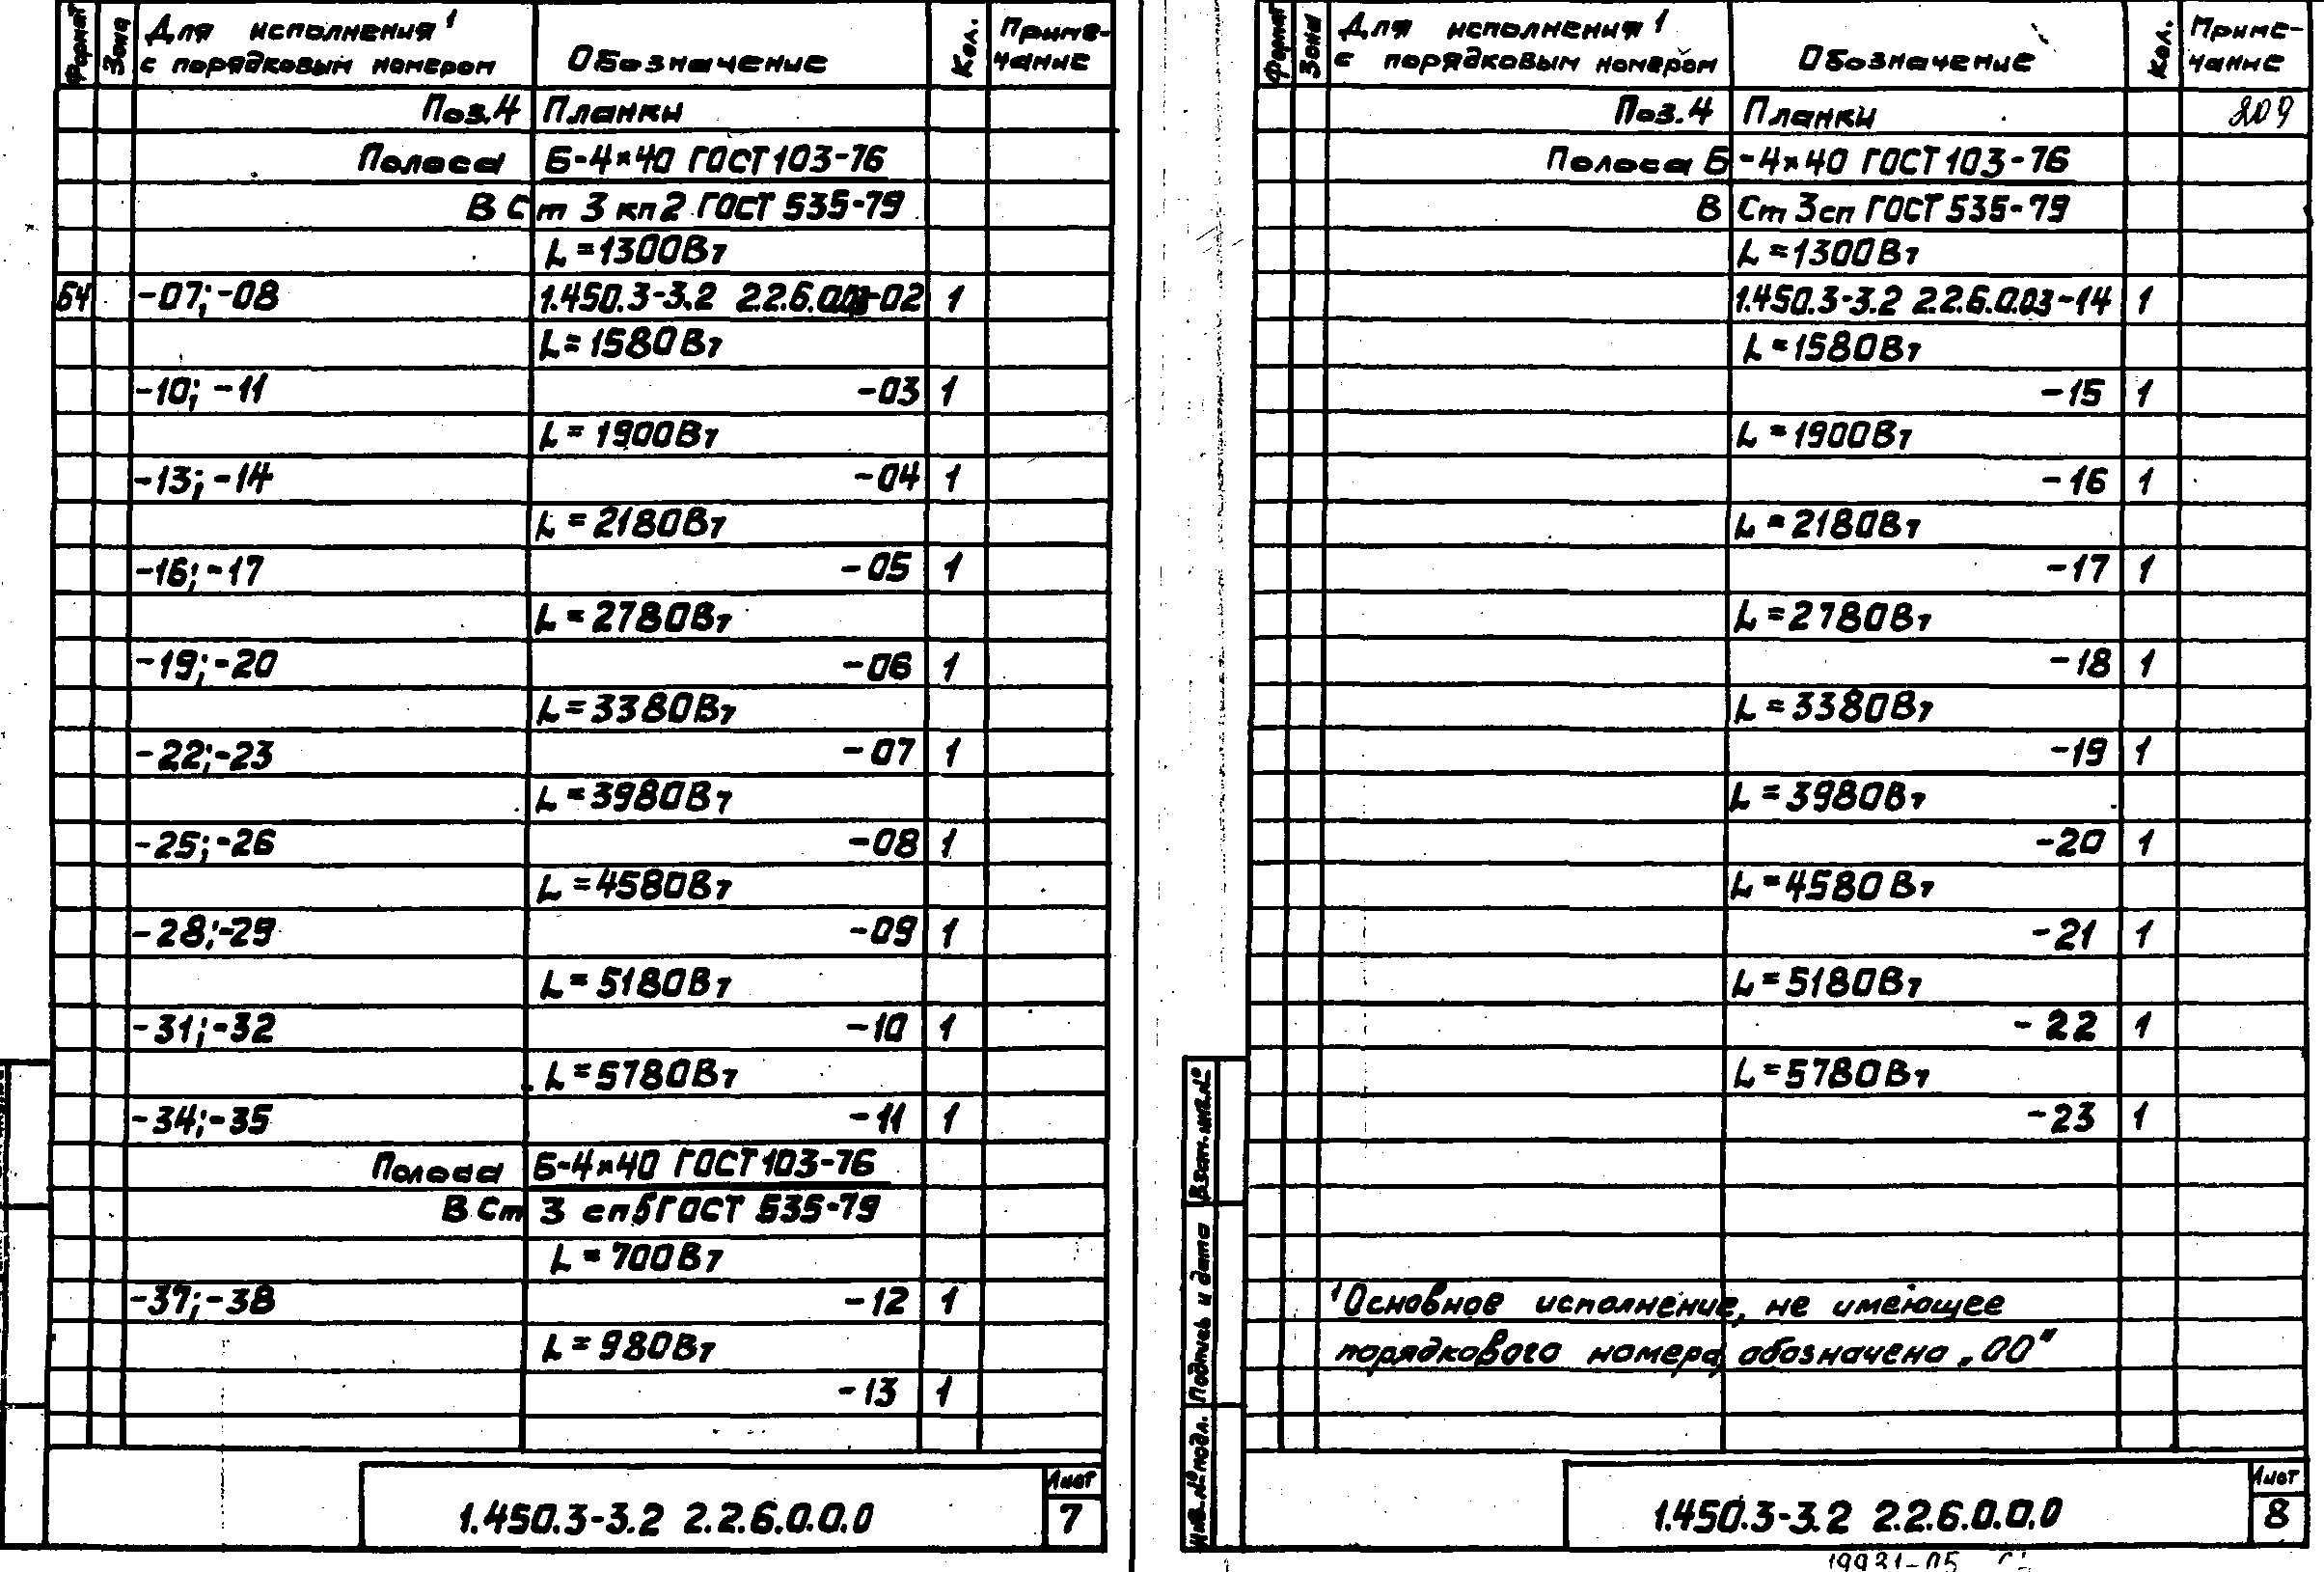 Формат Зона Для исполнения¹ с порядковым номером Обозначение Кол. Примечание
Поз.4 Планки
Полоса Б-4×40 ГОСТ 103-76
В Ст 3 кп2 ГОСТ 535-79
L=1300Вт
Б4 -07;-08 1.450.3-3.2 2.2.6.0.03-02 1
L=1580Вт
-10; -11 -03 1
L=1900Вт
-13; -14 -04 1
L=2180Вт
-16;-17 -05 1
L=2780Вт
-19;-20 -06 1
L=3380Вт
-22;-23 -07 1
L=3980Вт
-25;-26 -08 1
L=4580Вт
-28;-29 -09 1
L=5180Вт
-31;-32 -10 1
L=5780Вт
-34;-35 -11 1
Полоса Б-4×40 ГОСТ 103-76
В Ст 3 сп5 ГОСТ 535-79
L=700Вт
-37;-38 -12 1
L=980Вт
-13 1
1.450.3-3.2 2.2.6.0.0.0
Лист
7
Формат Зона Для исполнения¹ с порядковым номером Обозначение Кол. Примечание
Поз.4 Планки 209
Полоса Б-4×40 ГОСТ 103-76
В Ст 3сп ГОСТ 535-79
L=1300Вт
1.450.3-3.2 2.2.6.0.03-14 1
L=1580Вт
-15 1
L=1900Вт
-16 1
L=2180Вт
-17 1
L=2780Вт
-18 1
L=3380Вт
-19 1
L=3980Вт
-20 1
L=4580Вт
-21 1
L=5180Вт
-22 1
L=5780Вт
-23 1
¹Основное исполнение, не имеющее
порядкового номера, обозначено „00"
Взам.инв.№
Подпись и дата
Инв.№ подл.
1.450.3-3.2 2.2.6.0.0.0
Лист
8
19931-05